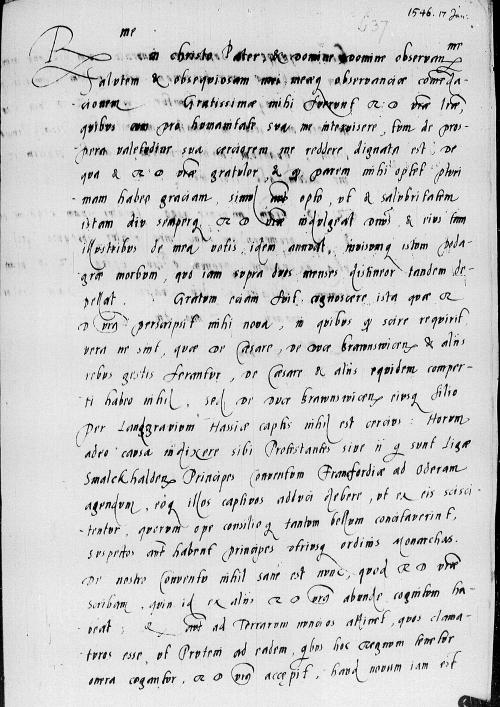 1546. 17 Jan:
R me in christo Pater, & domine domine observan me
Salutem & obsequiosam mei meaq observanciae comenda-
cionem Gratissimae mihi fuerunt R D vrae lrae
quibus pro humanitate sua me invisere, tum de pros-
pera valetudine sua cerciorem me reddere dignata est: De
qua & R D vrae gratulor, & q parem mihi optet pluri
mam habeo graciam, simul opto, ut & salubritatem
istam diu semperq R D vrae indulgeat Dnus, & eius tam
illustribus de mea votis, idem annuat, invisumq istum poda-
grae morbum, quo iam supra duos menses distineor tandem de-
pellat. Gratum eciam fuit cognoscere ista quae R
D vra perscripsit mihi nova, in quibus q scire requirit
vera ne sint, quae de Caesare, de Duce brawnswicen & aliis
rebus gestis feruntur, de Caesare & aliis equidem comper-
ti habeo nihil, sed de Duce brawnswicen eiusq filio
per Langravium Hassiae captis nihil est cercius: Horum
adeo causa indixere sibi Protestantes sive ii q sunt Ligae
Smalckhalden Principes conventum Francfordiae ad Oderam
agendum, eoq illos captivos adduci debere, ut ex eis scisci-
tentur, quorum ope consilioq tantum bellum concitaverint,
suspectos aut habent principes utriusq ordinis Monarchas.
De nostro conventu nihil sane est nunc, quod R D vrae
scribam, quin id ex aliis R D vra abunde cognitum ha-
beat; & aut ad Terrarum nuncios attinet, quos clama-
turos esse, ut Pruteni ad eadem, qbus hoc Regnum tenetur
onera cogantur, R D vra accepit, haud novum iam est